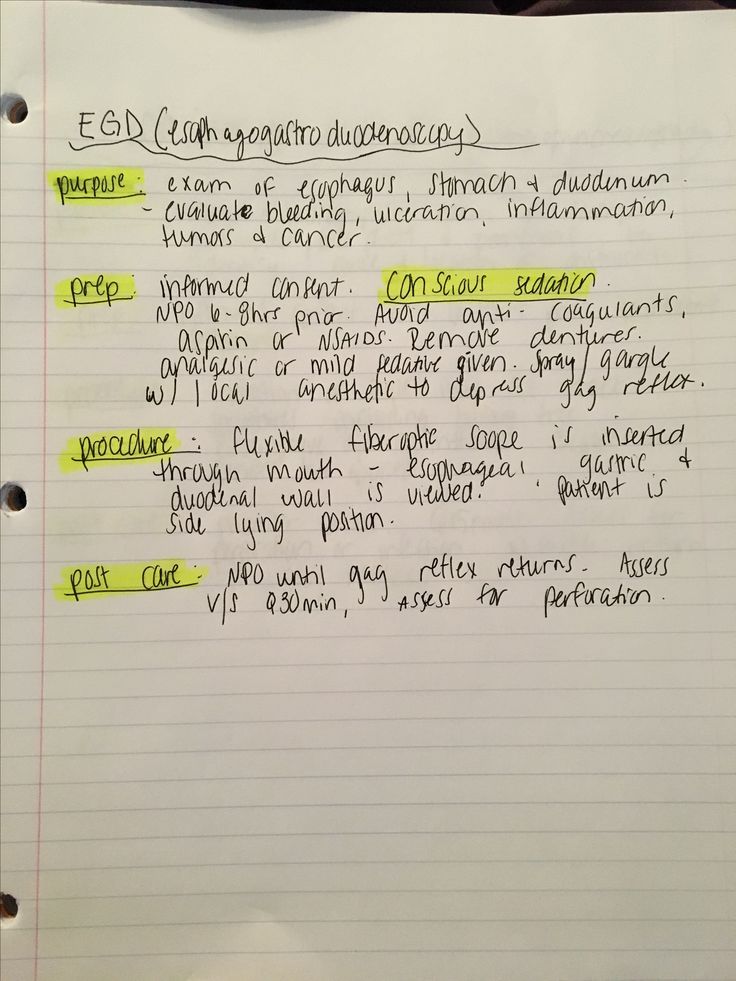 EGD (esophagogastroduodenoscopy)
purpose: exam of esophagus, stomach & duodenum.
- evaluate bleeding, ulceration, inflammation,
tumors & cancer.
prep: informed consent. conscious sedation.
NPO 6-8hrs prior. Avoid anti-coagulants,
aspirin or NSAIDS. Remove dentures.
analgesic or mild sedative given. Spray/gargle
w/ local anesthetic to depress gag reflex.
procedure: flexible fiberoptic scope is inserted
through mouth - esophageal gastric &
duodenal wall is viewed. patient is
side lying position.
post care: NPO until gag reflex returns. Assess
V/S Q30min, Assess for perforation.